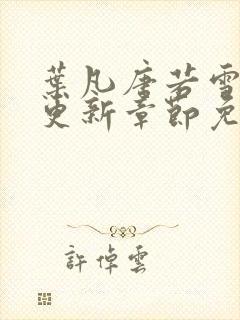 葉凡唐若雪
更新章節免
許倬雲